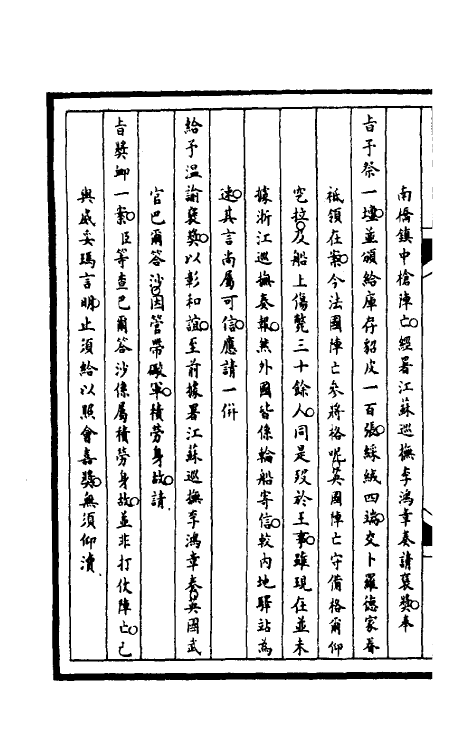 南橋鎮中槍陣亡經署江蘇巡撫李鴻章奏請褒獎奉
旨予祭一壇並頒給庫存貂皮一百張綵絨四端交卜羅德家眷
祗領在案今法國陣亡參將格呢英國陣亡守備格爾仰
乞拉及船上傷斃三十餘人同是歿於王事雖現在並未
據浙江巡撫奏報無外國皆係輪船寄信較內地驛站為
速其言尚屬可信應請一併
給予溫諭褒獎以彰和誼至前據署江蘇巡撫李鴻章奏英國武
官巴爾答沙因管帶礮軍積勞身故請
旨獎卹一案臣等查巴爾答沙係屬積勞身故並非打仗陣亡已
與威妥瑪言明止須給以照會嘉獎無須仰瀆